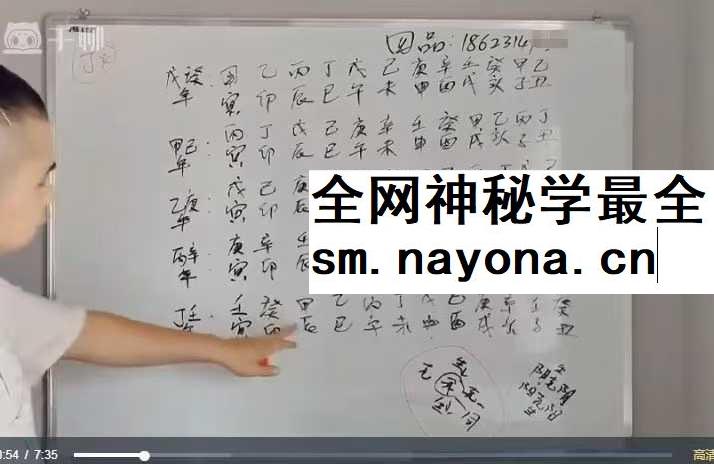 千聊
品:1862314
戊癸: 甲 乙 丙 丁 戊 己 庚 辛 壬 癸 甲 乙
年 寅 卯 辰 巳 午 未 申 酉 戌 亥 子 丑
甲己: 丙 丁 戊 己 庚 辛 壬 癸 甲 乙 丙 丁
年 寅 卯 辰 巳 午 未 申 酉 戌 亥 子 丑
乙庚: 戊 己 庚
年 寅 卯 辰
全网神秘学最全
sm.nayona.cn
丙辛: 庚 辛 壬
年 寅 卯 辰
丁壬: 壬 癸 甲 乙 丙 丁 戊 己 庚 辛 壬 癸
年 寅 卯 辰 巳 午 未 申 酉 戌 亥 子 丑
3:54 / 7:35
高清